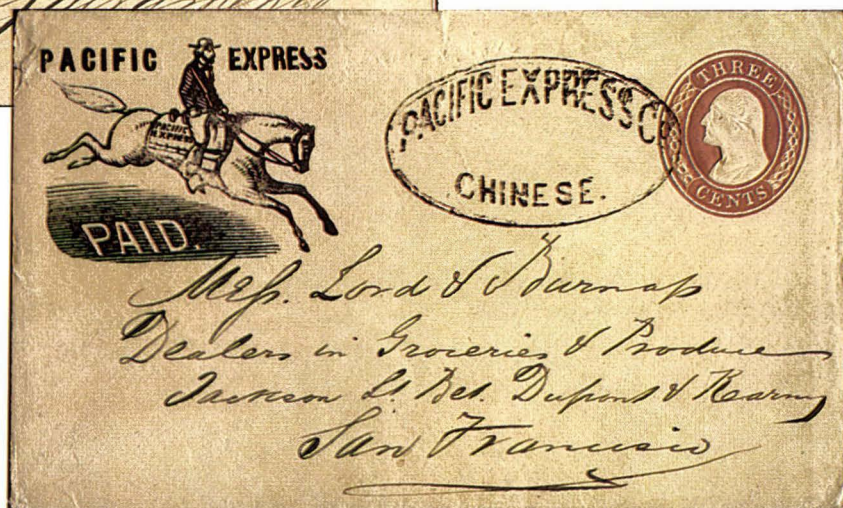 PACIFIC EXPRESS
PACIFIC EXPRESS
PAID.
PACIFIC EXPRESS Co
CHINESE.
THREE
CENTS
Mess. Lord & Burnap
Dealers in Groceries & Produce
Jackson St. Bet. Dupont & Kearny
San Francisco